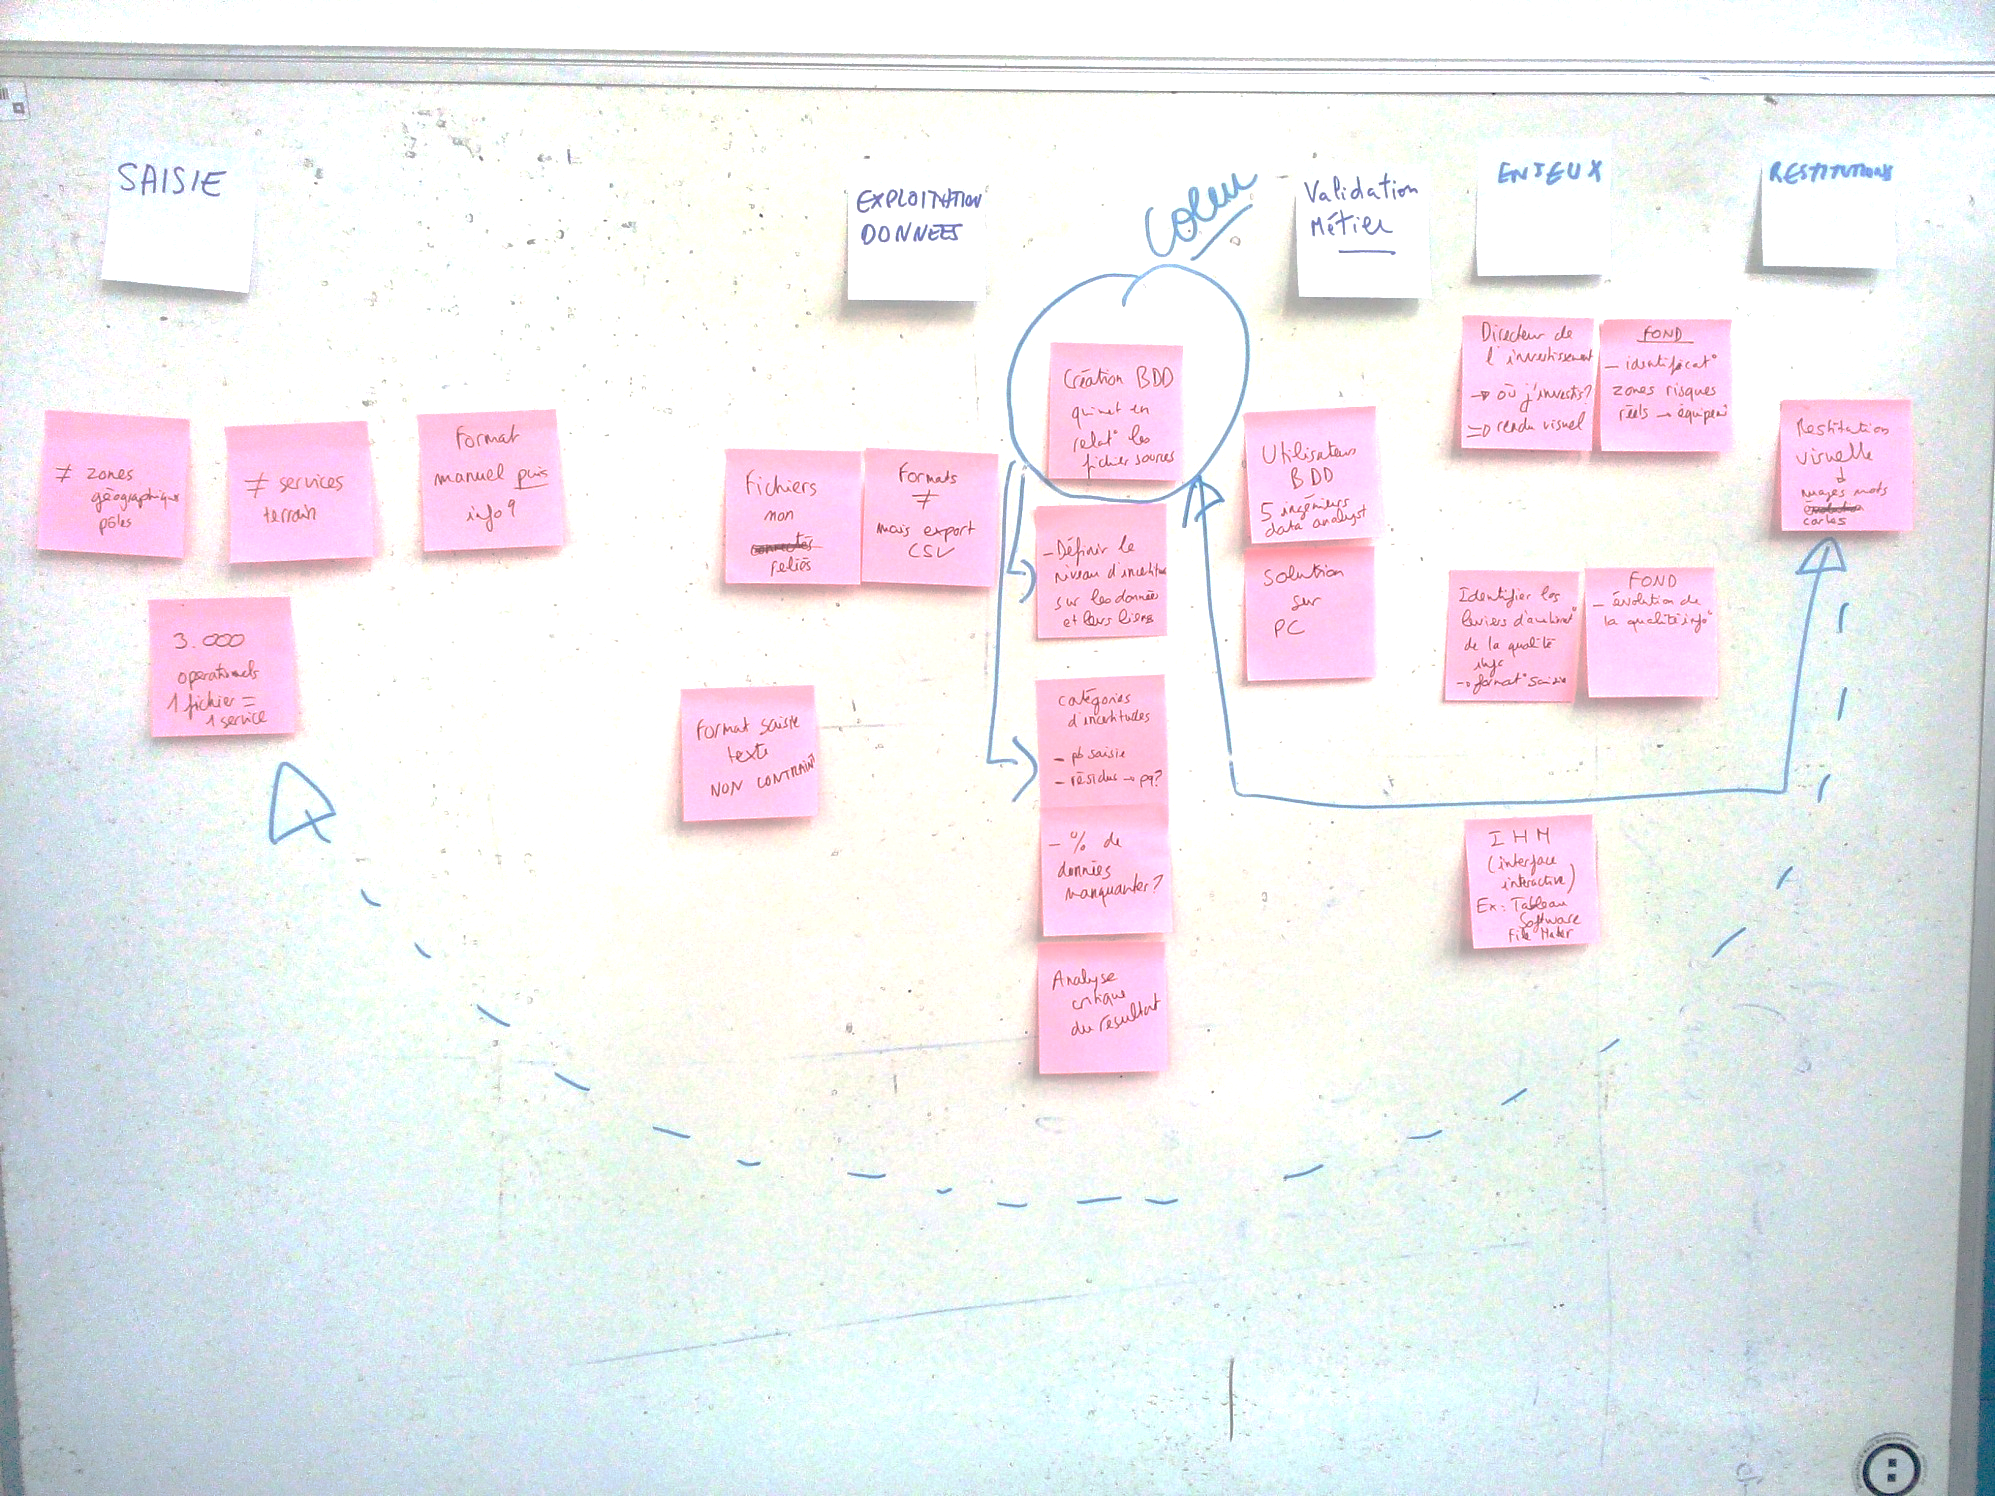 SAISIE
EXPLOITATION
DONNEES
Coeur
Validation
Métier
ENJEUX
RESTITUTIONS
≠ zones
géographiques
pôles
≠ services
terrain
Format
manuel puis
info
3.000
operationnels
1 fichier =
1 service
Fichiers
non
connectés
reliés
Formats
≠
mais export
CSV
Format saisie
texte
NON CONTRAINT
Création BDD
qui met en
relat° les
fichier sources
- Définir le
niveau d'incertitude
sur les données
et leurs liens
catégories
d'incertitudes
- pb saisie
- résidus → pq?
- % de
données
manquantes?
Analyse
critique
du résultat
Utilisateurs
BDD
5 ingénieurs
data analyst
Solution
sur
PC
Directeur de
l'investissement
→ où j'investis?
⇒ rendu visuel
FOND
- identificat°
zones risques
réels → équipem
Identifier les
leviers d'améliorat°
de la qualité
info
→ format° saisie
FOND
- évolution de
la qualité info°
IHM
(interface
interactive)
Ex: Tableau
Software
File Maker
Restitution
visuelle
↓
nuages mots
cartes